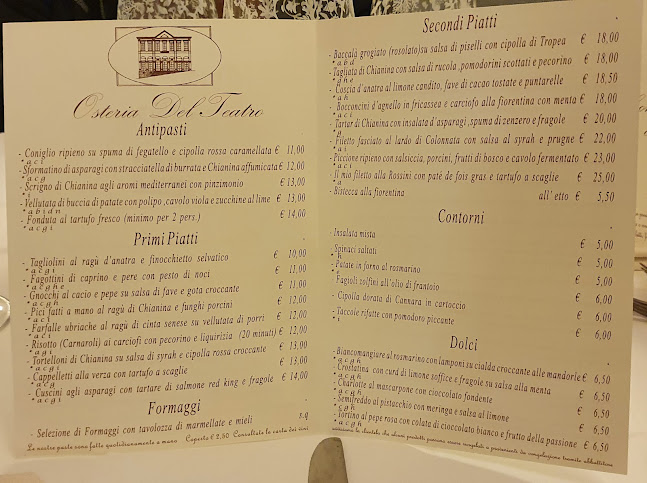 Osteria Del Teatro
Antipasti
- Coniglio ripieno su spuma di fegatello e cipolla rossa caramellata € 11,00
* a c g
- Sformatino di asparagi con stracciatella di burrata e Chianina affumicata € 12,00
* a c g
- Scrigno di Chianina agli aromi mediterranei con pinzimonio € 13,00
- Vellutata di buccia di patate con polipo, cavolo viola e zucchine al lime € 13,00
* a b i d n
- Fonduta al tartufo fresco (minimo per 2 pers.) € 14,00
* a c g i
Primi Piatti
- Tagliolini al ragù d'anatra e finocchietto selvatico € 10,00
* a c g i
- Fagottini di caprino e pere con pesto di noci € 11,00
* a c g h e
- Gnocchi al cacio e pepe su salsa di fave e gota croccante € 11,00
* a c g h
- Pici fatti a mano al ragù di Chianina e funghi porcini € 12,00
* a c i
- Farfalle ubriache al ragù di cinta senese su vellutata di porri € 12,00
* a c i
- Risotto (Carnaroli) ai carciofi con pecorino e liquirizia (20 minuti) € 12,00
* a g i
- Tortelloni di Chianina su salsa di syrah e cipolla rossa croccante € 13,00
* a c g i
- Cappelletti alla verza con tartufo a scaglie € 13,00
* a c g
- Cuscini agli asparagi con tartare di salmone red king e fragole € 14,00
* a c g i
Formaggi
- Selezione di Formaggi con tavolozza di marmellate e mieli s.q
Le nostre paste sono fatte quotidianamente a mano Coperto € 2,50 Consultate la carta dei vini
Secondi Piatti
- Baccalà grogiato (rosolato) su salsa di piselli con cipolla di Tropea € 18,00
* a b d
- Tagliata di Chianina con salsa di rucola ,pomodorini scottati e pecorino € 18,00
* g h e
- Coscia d'anatra al limone candito, fave di cacao tostate e puntarelle € 18,50
* a h
- Bocconcini d'agnello in fricassea e carciofo alla fiorentina con menta € 18,00
* a c i
- Tartar di Chianina con insalata d'asparagi ,spuma di zenzero e fragole € 20,00
- Filetto fasciato al lardo di Colonnata con salsa al syrah e prugne € 22,00
* a i
- Piccione ripieno con salsiccia, porcini, frutti di bosco e cavolo fermentato € 23,00
* a c i
- Il mio filetto alla Rossini con paté de fois gras e tartufo a scaglie € 25,00
* a
- Bistecca alla fiorentina all' etto € 5,50
Contorni
- Insalata mista € 5,00
- Spinaci saltati € 5,00
* h
- Patate in forno al rosmarino € 5,00
- Fagioli zolfini all'olio di frantoio € 5,00
- Cipolla dorata di Cannara in cartoccio € 6,00
- Taccole rifatte con pomodoro piccante € 6,00
* i
Dolci
- Biancomangiare al rosmarino con lamponi su cialda croccante alle mandorle € 6,50
* a c g h
- Crostatina con curd di limone soffice e fragole su salsa alla menta € 6,50
* a c g h
- Charlotte al mascarpone con cioccolato fondente € 6,50
* a c g h
- Semifreddo al pistacchio con meringa e salsa al limone € 6,50
* c g h
- Tortino al pepe rosa con colata di cioccolato bianco e frutto della passione € 6,50
* a c g h
la clientela che alcuni prodotti possono essere congelati o provenienti da congelazione tramite abbattitore